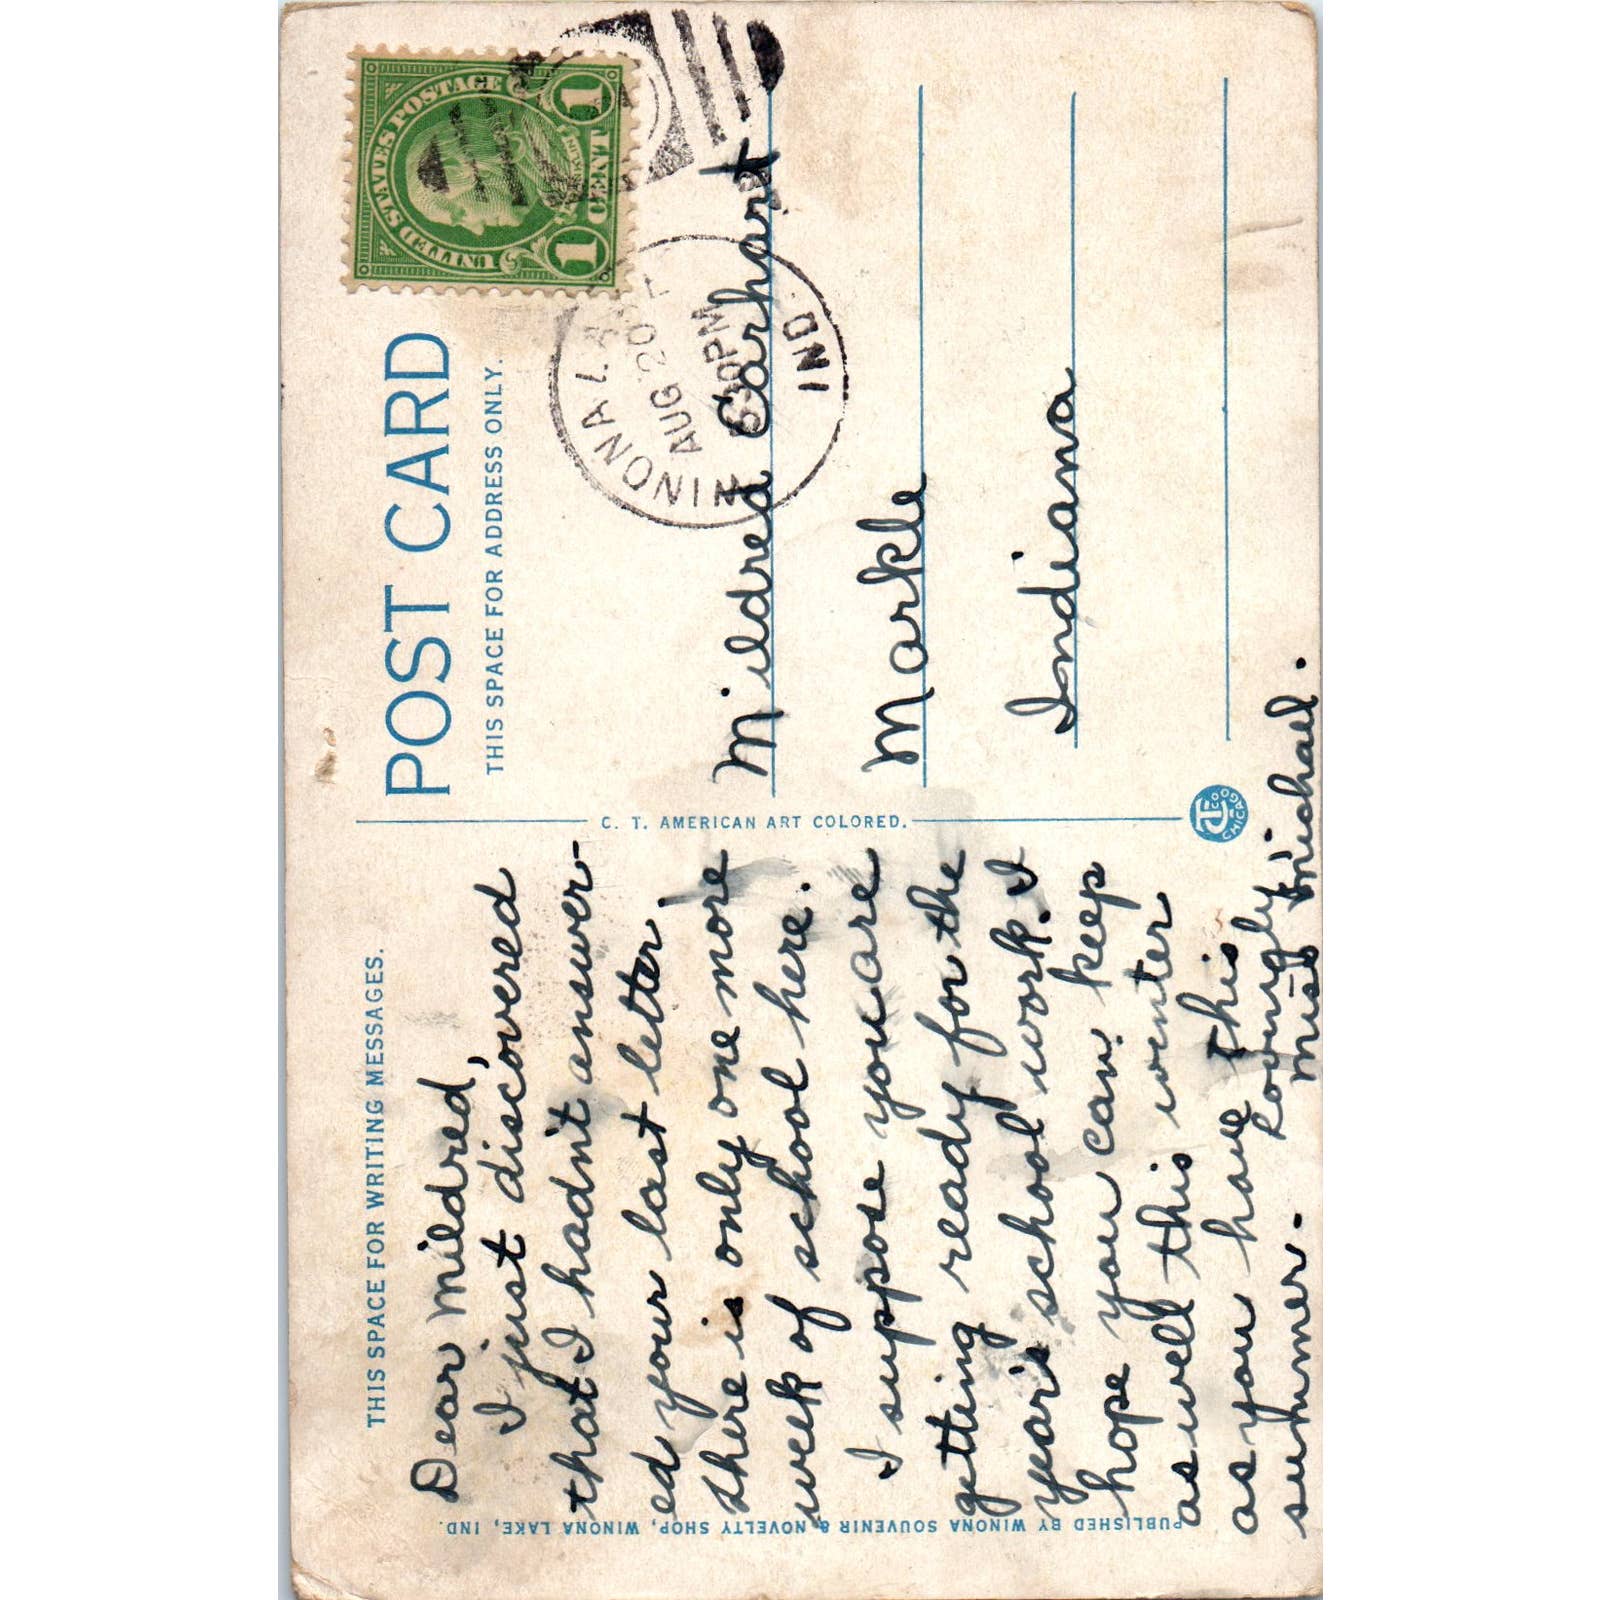 THIS SPACE FOR WRITING MESSAGES.
Dear Mildred,
I just discovered
that I hadn't answer-
ed your last letter.
there is only one more
week of school here.
I suppose you are
getting ready for the
year's school work. I
hope you can keep
as well this winter
as you have this
summer.
Lovingly,
Miss Michael.
PUBLISHED BY WINONA SOUVENIR & NOVELTY SHOP, WINONA LAKE, IND.
C. T. AMERICAN ART COLORED.
POST CARD
THIS SPACE FOR ADDRESS ONLY.
UNITED STATES POSTAGE
FRANKLIN
1 CENT 1
WINONA LAKE
AUG 20
630PM
IND.
Mildred Earhart
Markle
Indiana
CT CO
CHICAGO